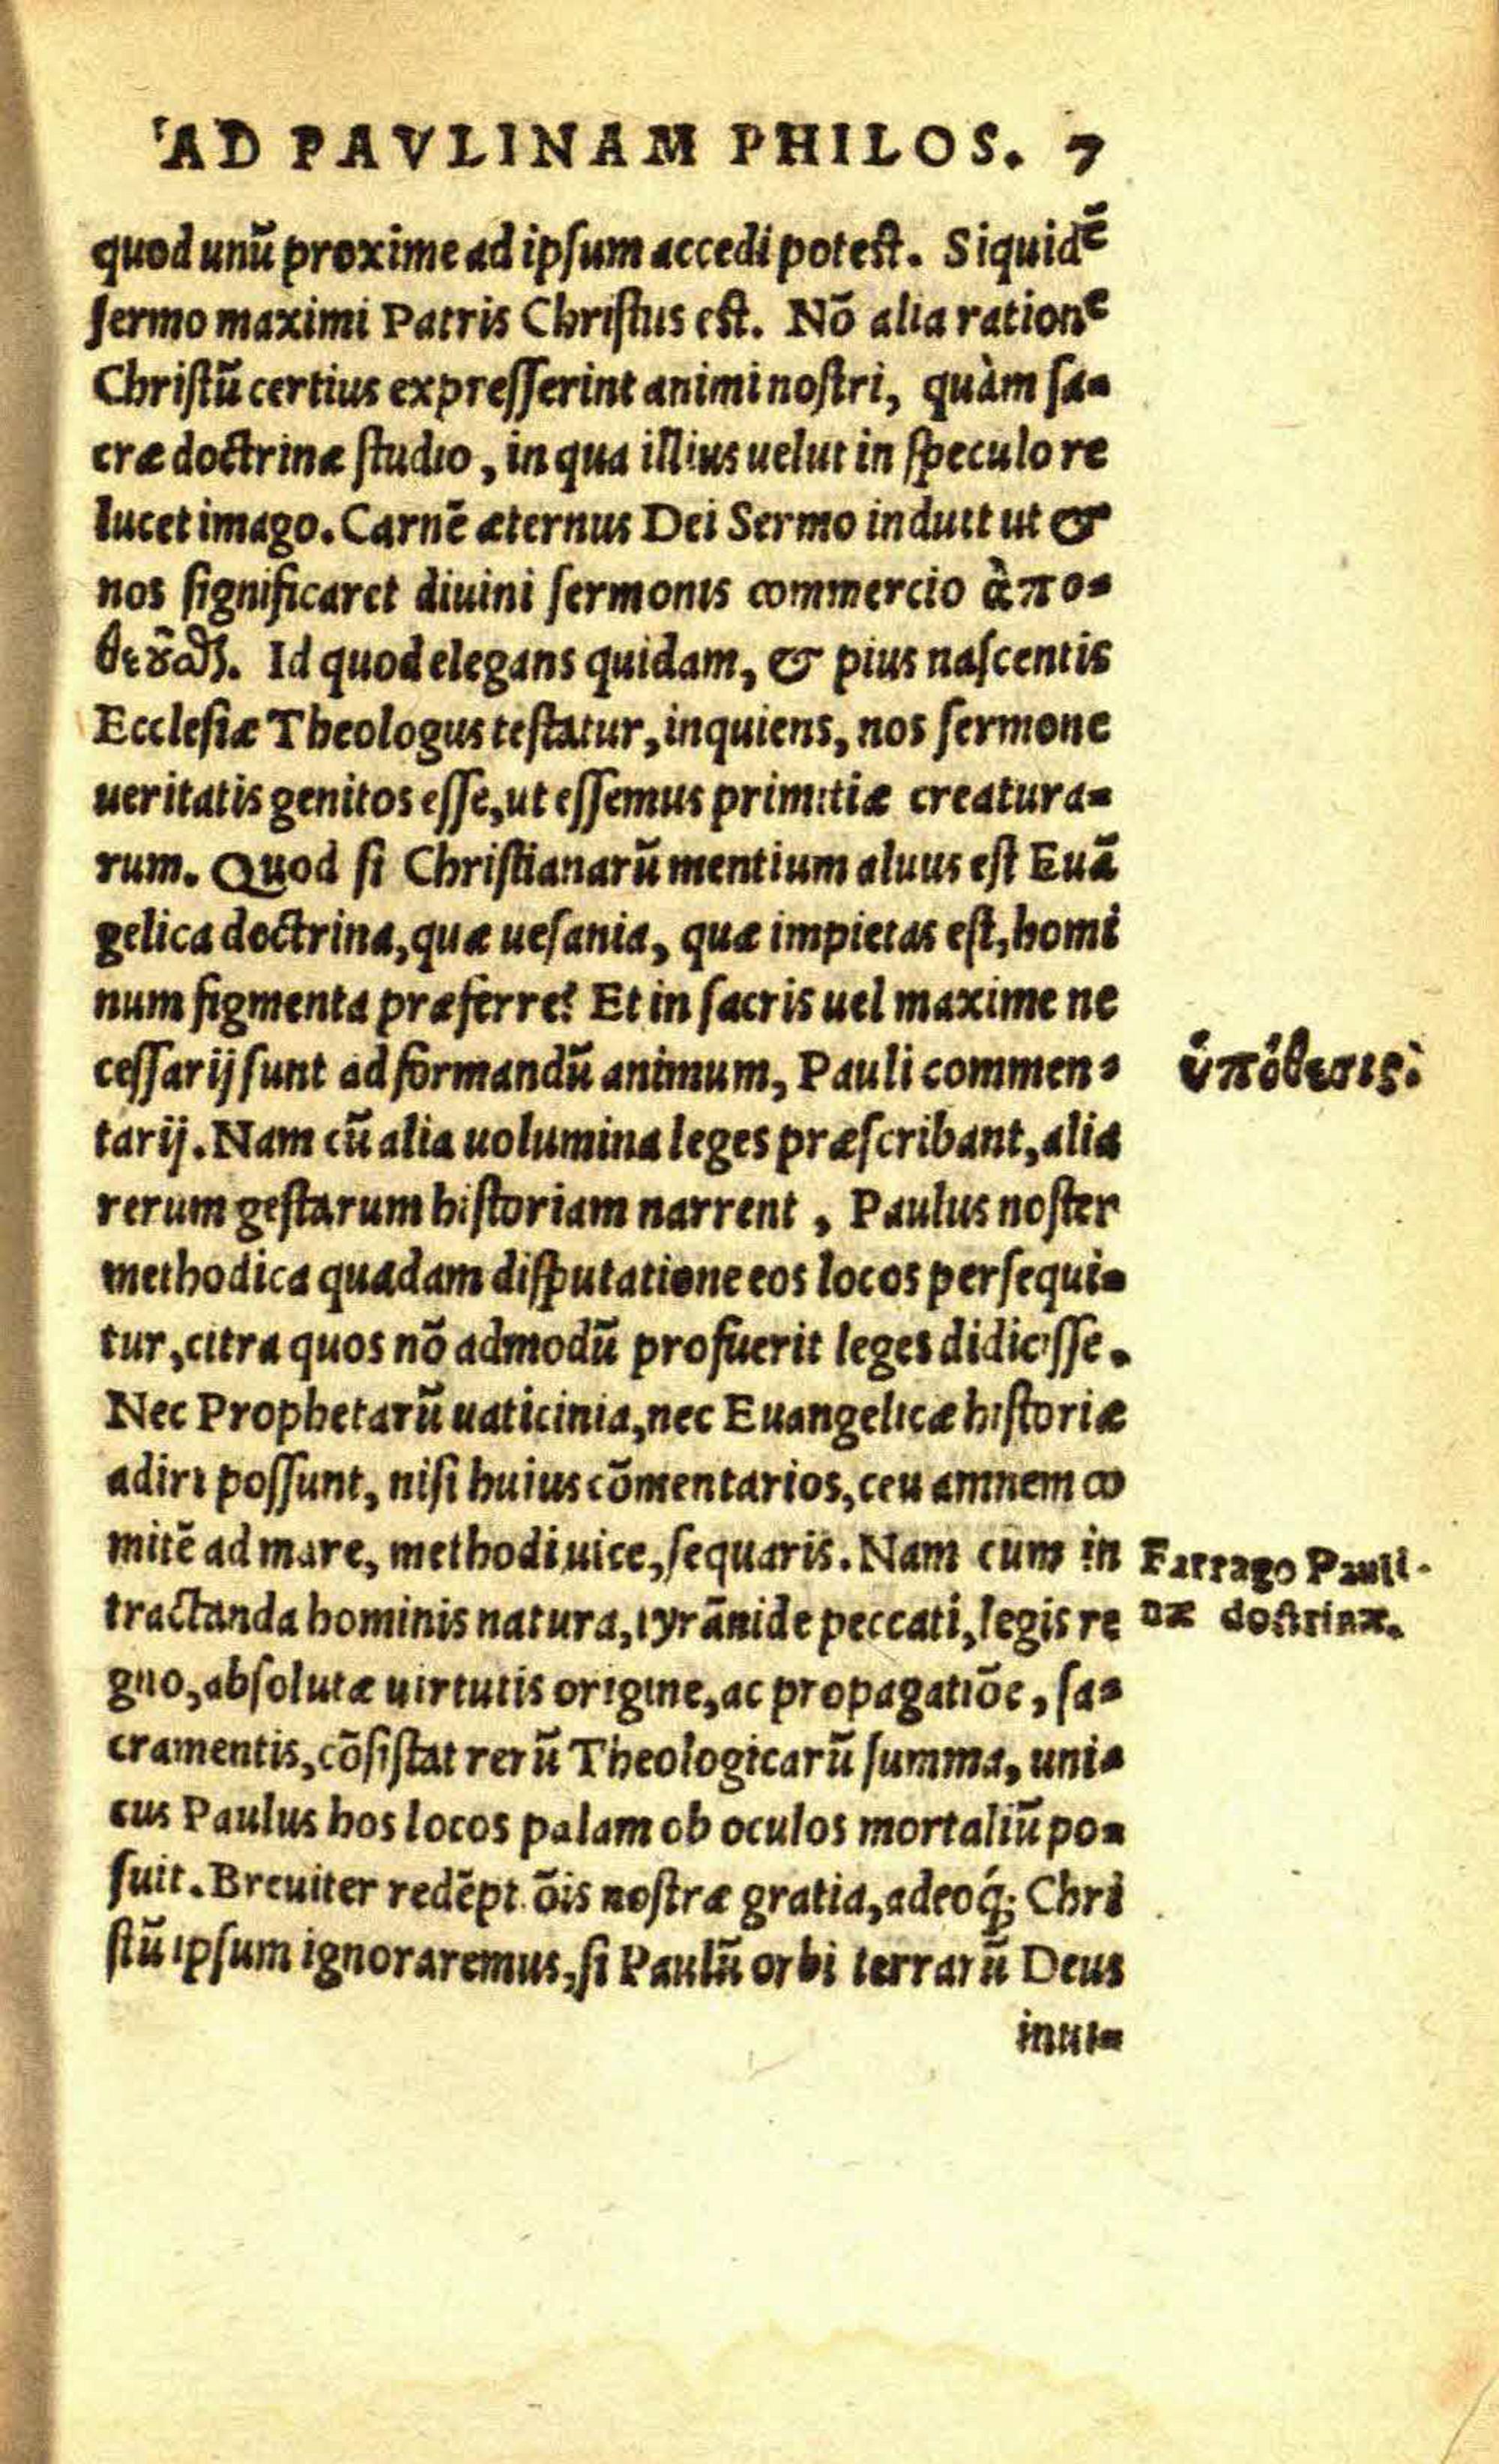 AD PAVLINAM PHILOS. 7
quod unū proxime ad ipsum accedi potest. Siquidē
sermo maximi Patris Christus est. Nō alia ratione
Christū certius expresserint animi nostri, quàm sa-
cræ doctrinæ studio, in qua illius uelut in speculo re
lucet imago. Carnē æternus Dei Sermo induit ut &
nos significaret diuini sermonis commercio ἀπο-
θεοῦσθαι. Id quod elegans quidam, & pius nascentis
Ecclesiæ Theologus testatur, inquiens, nos sermone
ueritatis genitos esse, ut essemus primitiæ creatura-
rum. Quod si Christianarū mentium aluus est Euā
gelica doctrina, quæ uesania, quæ impietas est, homi
num figmenta præferre? Et in sacris uel maxime ne
cessarij sunt ad formandū animum, Pauli commen-
ὑπόθεσις.
tarij. Nam cū alia uolumina leges præscribant, alia
rerum gestarum historiam narrent, Paulus noster
methodica quadam disputatione eos locos persequi-
tur, citra quos nō admodū profuerit leges didicisse.
Nec Prophetarū uaticinia, nec Euangelicæ historiæ
adiri possunt, nisi huius cōmentarios, ceu amnem co
mitē ad mare, methodi uice, sequaris. Nam cum in
Farrago Pauli-
tractanda hominis natura, tyrānide peccati, legis re
næ doctrinæ.
gno, absolutæ uirtutis origine, ac propagatiōe, sa-
cramentis, cōsistat rerū Theologicarū summa, uni-
cus Paulus hos locos palam ob oculos mortaliū po-
suit. Breuiter redēptiōis nostræ gratia, adeoq́; Chri
stū ipsum ignoraremus, si Paulū orbi terrarū Deus
inui-